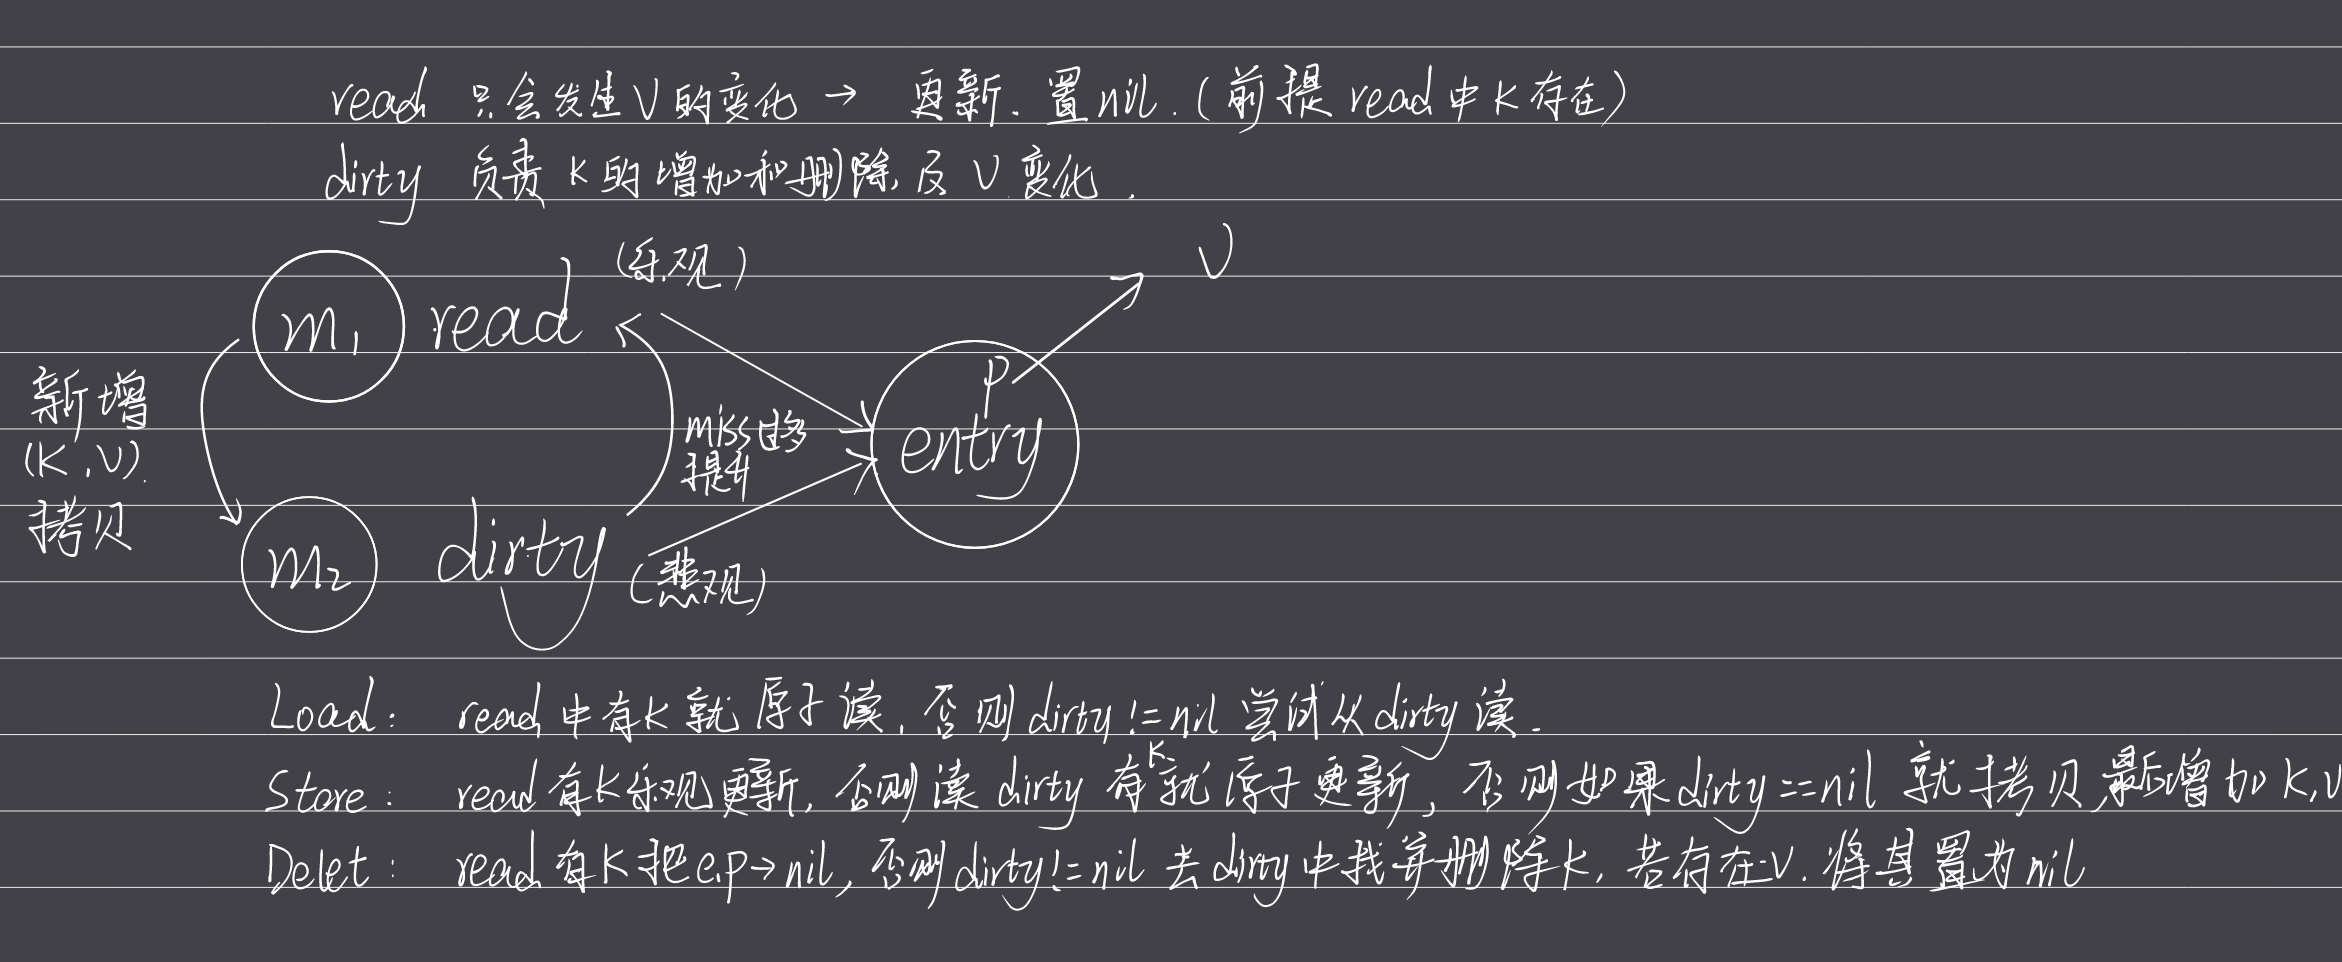 read 只会发生V的变化 → 更新、置nil.(前提read中K存在)
dirty 负责K的增加和删除,及V变化.
(乐观)
V
m1 read
p
entry
新增
(K,V)
拷贝
miss够
提升
m2 dirty
(悲观)
Load: read中有K就原子读,否则dirty!=nil尝试从dirty读.
Store: read有K乐观更新,否则读dirty有K就原子更新,否则如果dirty==nil就拷贝,最后增加K,V
Delet: read有K把e.p→nil,否则dirty!=nil去dirty中找并删除K,若存在V.将其置为nil